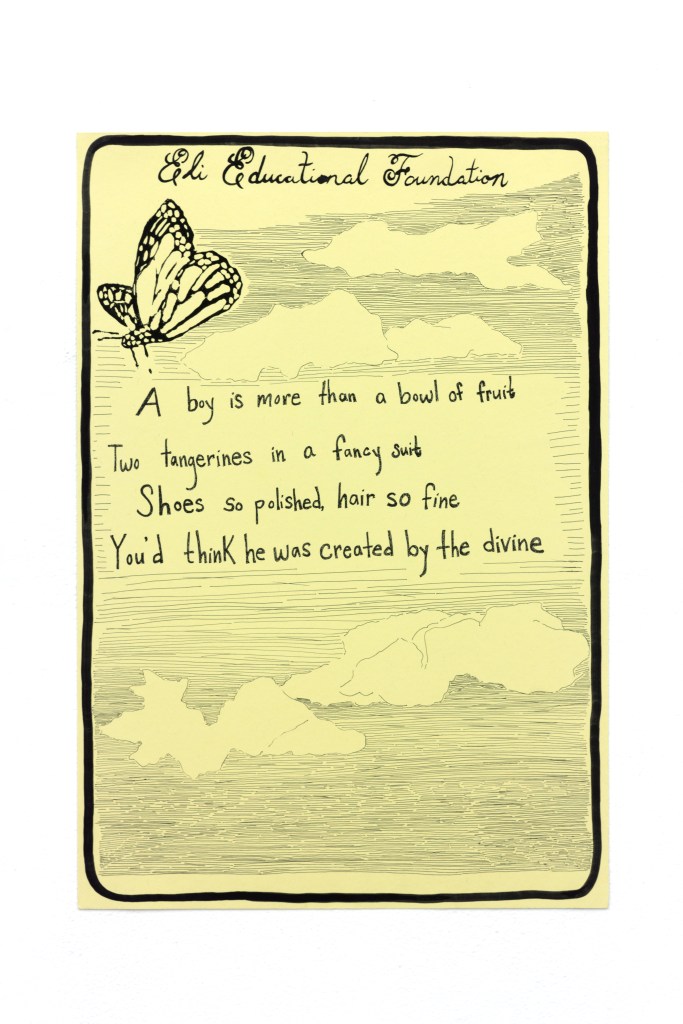 Eli Educational Foundation
A boy is more than a bowl of fruit
Two tangerines in a fancy suit
Shoes so polished, hair so fine
You'd think he was created by the divine